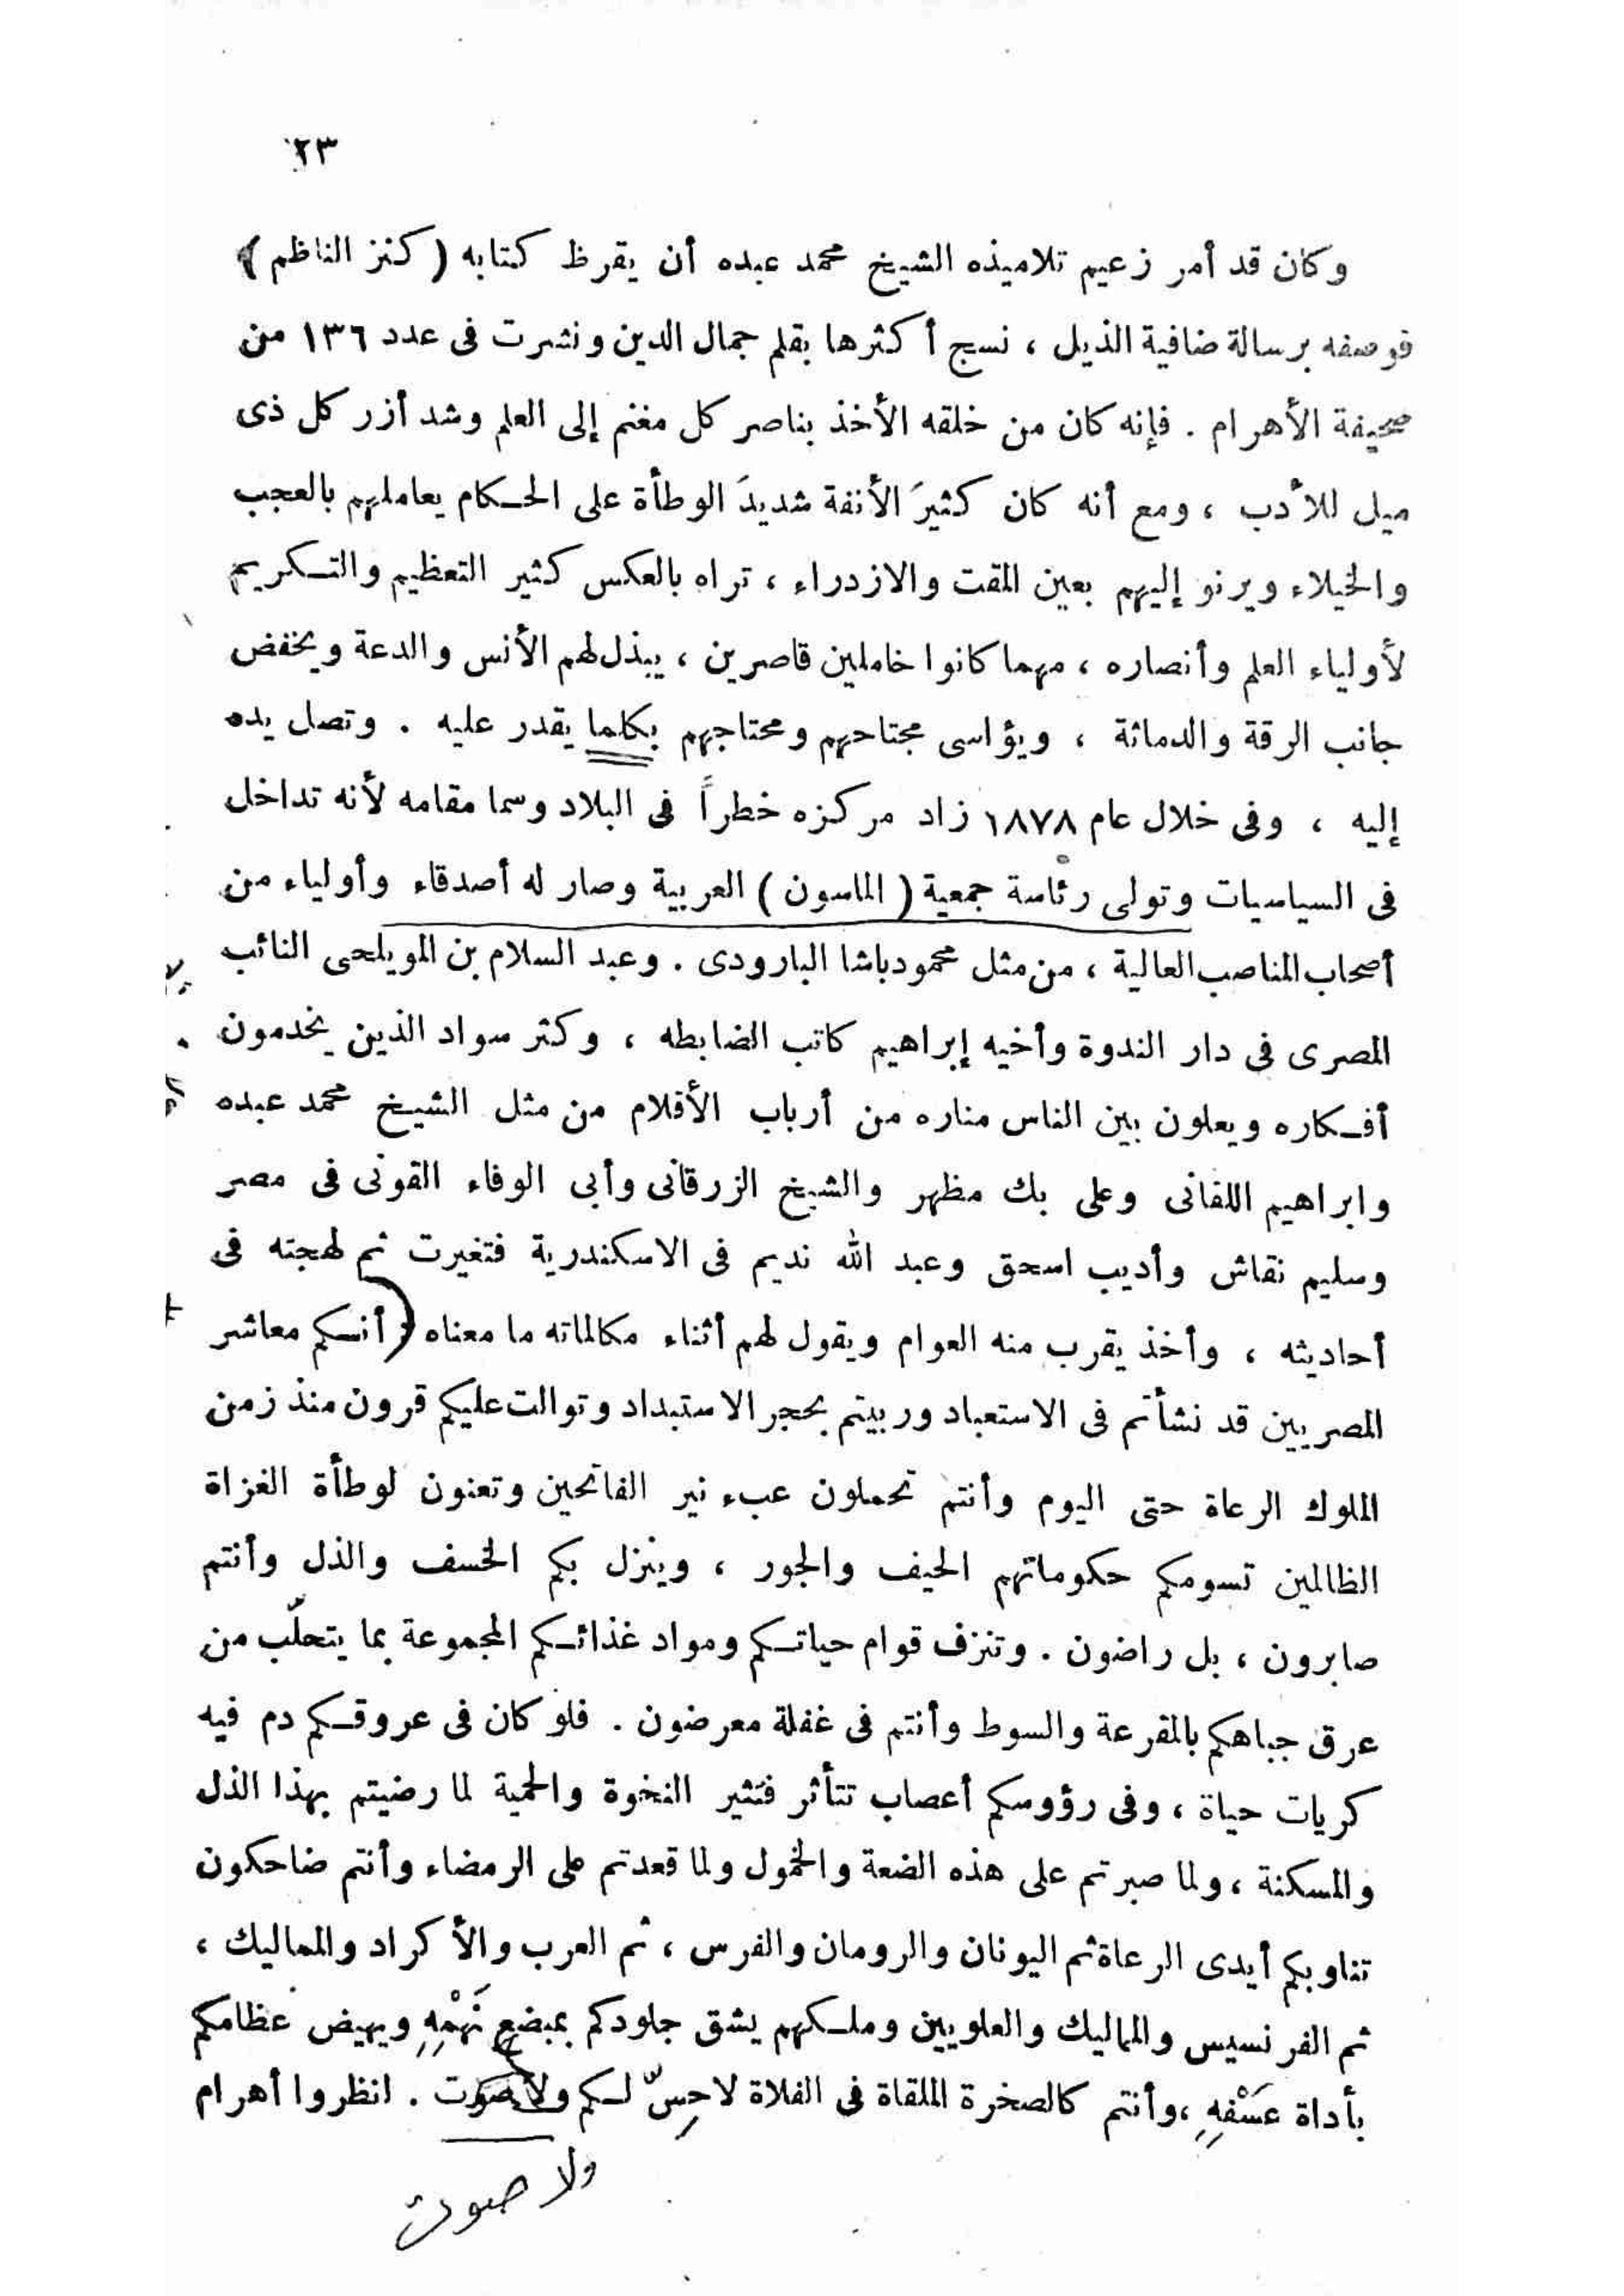 ٢٣
وكان قد أمر زعيم تلاميذه الشيخ محمد عبده أن يقرظ كتابه (كنز الناظم)
فوصفه برسالة ضافية الذيل ، نسج أكثرها بقلم جمال الدين ونشرت فى عدد ١٣٦ من
صحيفة الأهرام . فإنه كان من خلقه الأخذ بناصر كل مغنم إلى العلم وشد أزر كل ذى
ميل للأدب ، ومع أنه كان كثيرَ الأنفة شديدَ الوطأة على الحكام يعاملهم بالعجب
والخيلاء ويرنو إليهم بعين المقت والازدراء ، تراه بالعكس كثير التعظيم والتكريم
لأولياء العلم وأنصاره ، مهما كانوا خاملين قاصرين ، يبذل لهم الأنس والدعة ويخفض
جانب الرقة والدماثة ، ويؤاسى مجتاحهم ومحتاجهم بكلما يقدر عليه . وتصل يده
إليه ، وفى خلال عام ١٨٧٨ زاد مركزه خطراً فى البلاد وسما مقامه لأنه تداخل
فى السياسيات وتولى رئاسة جمعية (الماسون) العربية وصار له أصدقاء وأولياء من
أصحاب المناصب العالية ، من مثل محمود باشا البارودى . وعبد السلام بن المويلحى النائب
المصرى فى دار الندوة وأخيه إبراهيم كاتب الضابطه ، وكثر سواد الذين يخدمون
أفكاره ويعلون بين الناس مناره من أرباب الأقلام من مثل الشيخ محمد عبده
وابراهيم اللقانى وعلى بك مظهر والشيخ الزرقانى وأبى الوفاء القونى فى مصر
وسليم نقاش وأديب اسحق وعبد الله نديم فى الاسكندرية فتغيرت ثم لهجته فى
أحاديثه ، وأخذ يقرب منه العوام ويقول لهم أثناء مكالماته ما معناه (أنكم معاشر
المصريين قد نشأتم فى الاستعباد وربيتم بحجر الاستبداد وتوالت عليكم قرون منذ زمن
الملوك الرعاة حتى اليوم وأنتم تحملون عبء نير الفاتحين وتعنون لوطأة الغزاة
الظالمين تسومكم حكوماتهم الحيف والجور ، وينزل بكم الخسف والذل وأنتم
صابرون ، بل راضون . وتنزف قوام حياتكم ومواد غذائكم المجموعة بما يتحلّب من
عرق جباهكم بالمقرعة والسوط وأنتم فى غفلة معرضون . فلو كان فى عروقكم دم فيه
كريات حياة ، وفى رؤوسكم أعصاب تتأثر فتثير النخوة والحمية لما رضيتم بهذا الذل
والمسكنة ، ولما صبرتم على هذه الضعة والخمول ولما قعدتم على الرمضاء وأنتم ضاحكون
تناوبكم أيدى الرعاة ثم اليونان والرومان والفرس ، ثم العرب والأكراد والمماليك ،
ثم الفرنسيس والماليك والعلويين وملكهم يشق جلودكم بمبضع نَهْمِهِ ويهيض عظامكم
بأداة عَسْفِهِ ، وأنتم كالصخرة الملقاة فى الفلاة لا حِسّ لكم ولا صوت . انظروا أهرام
ولا صوت